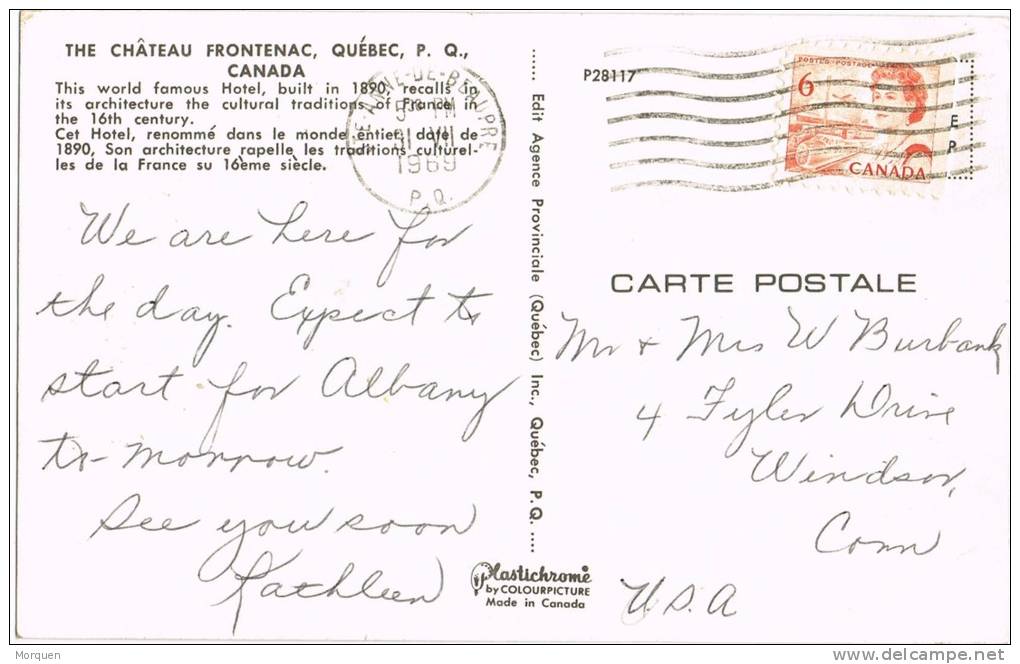 THE CHÂTEAU FRONTENAC, QUÉBEC, P. Q.,
CANADA
This world famous Hotel, built in 1890, recalls in
its architecture the cultural traditions of France in
the 16th century.
Cet Hotel, renommé dans le monde entier, date de
1890, Son architecture rapelle les traditions culturel-
les de la France su 16ème siècle.
STE-ANNE-DE-BEAUPRE
PM
1969
P.Q.
We are here for
the day. Expect to
start for Albany
to-morrow.
See you soon
Kathleen
..... Edit Agence Provinciale (Québec) Inc., Québec, P. Q. ....
Plastichrome
by COLOURPICTURE
Made in Canada
P28117
6
POSTES-POSTAGE
CANADA
E
P
CARTE POSTALE
Mr + Mrs W Burbank
4 Tyler Drive
Windsor,
Conn
U.S.A
Morquen
delcampe.net